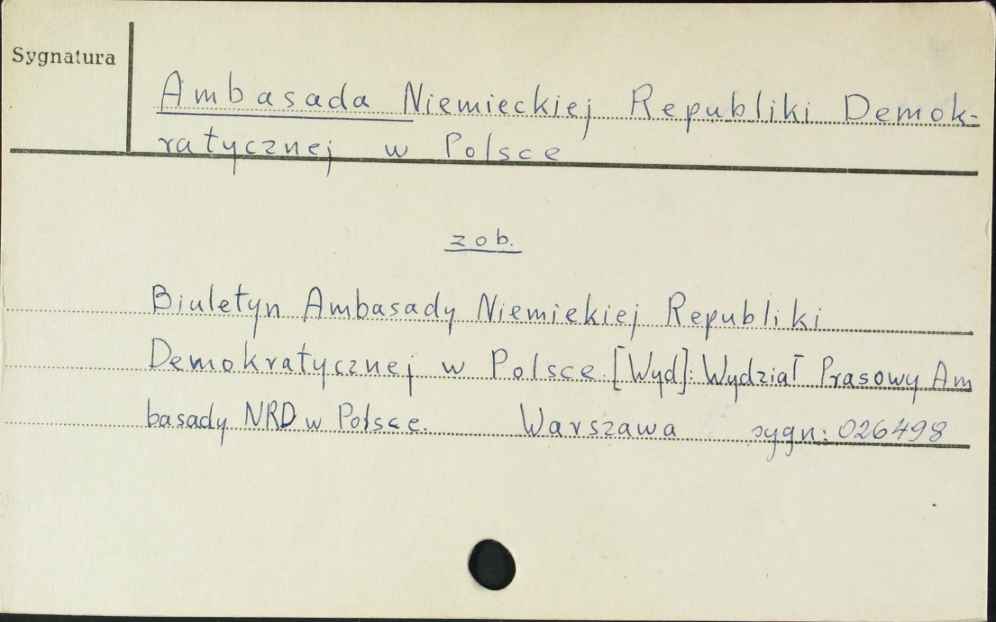 Sygnatura
Ambasada Niemieckiej Republiki Demok-
ratycznej w Polsce
zob.
Biuletyn Ambasady Niemiekiej Republiki
Demokratycznej w Polsce. [Wyd]: Wydział Prasowy Am
basady NRD w Polsce. Warszawa sygn: 026498